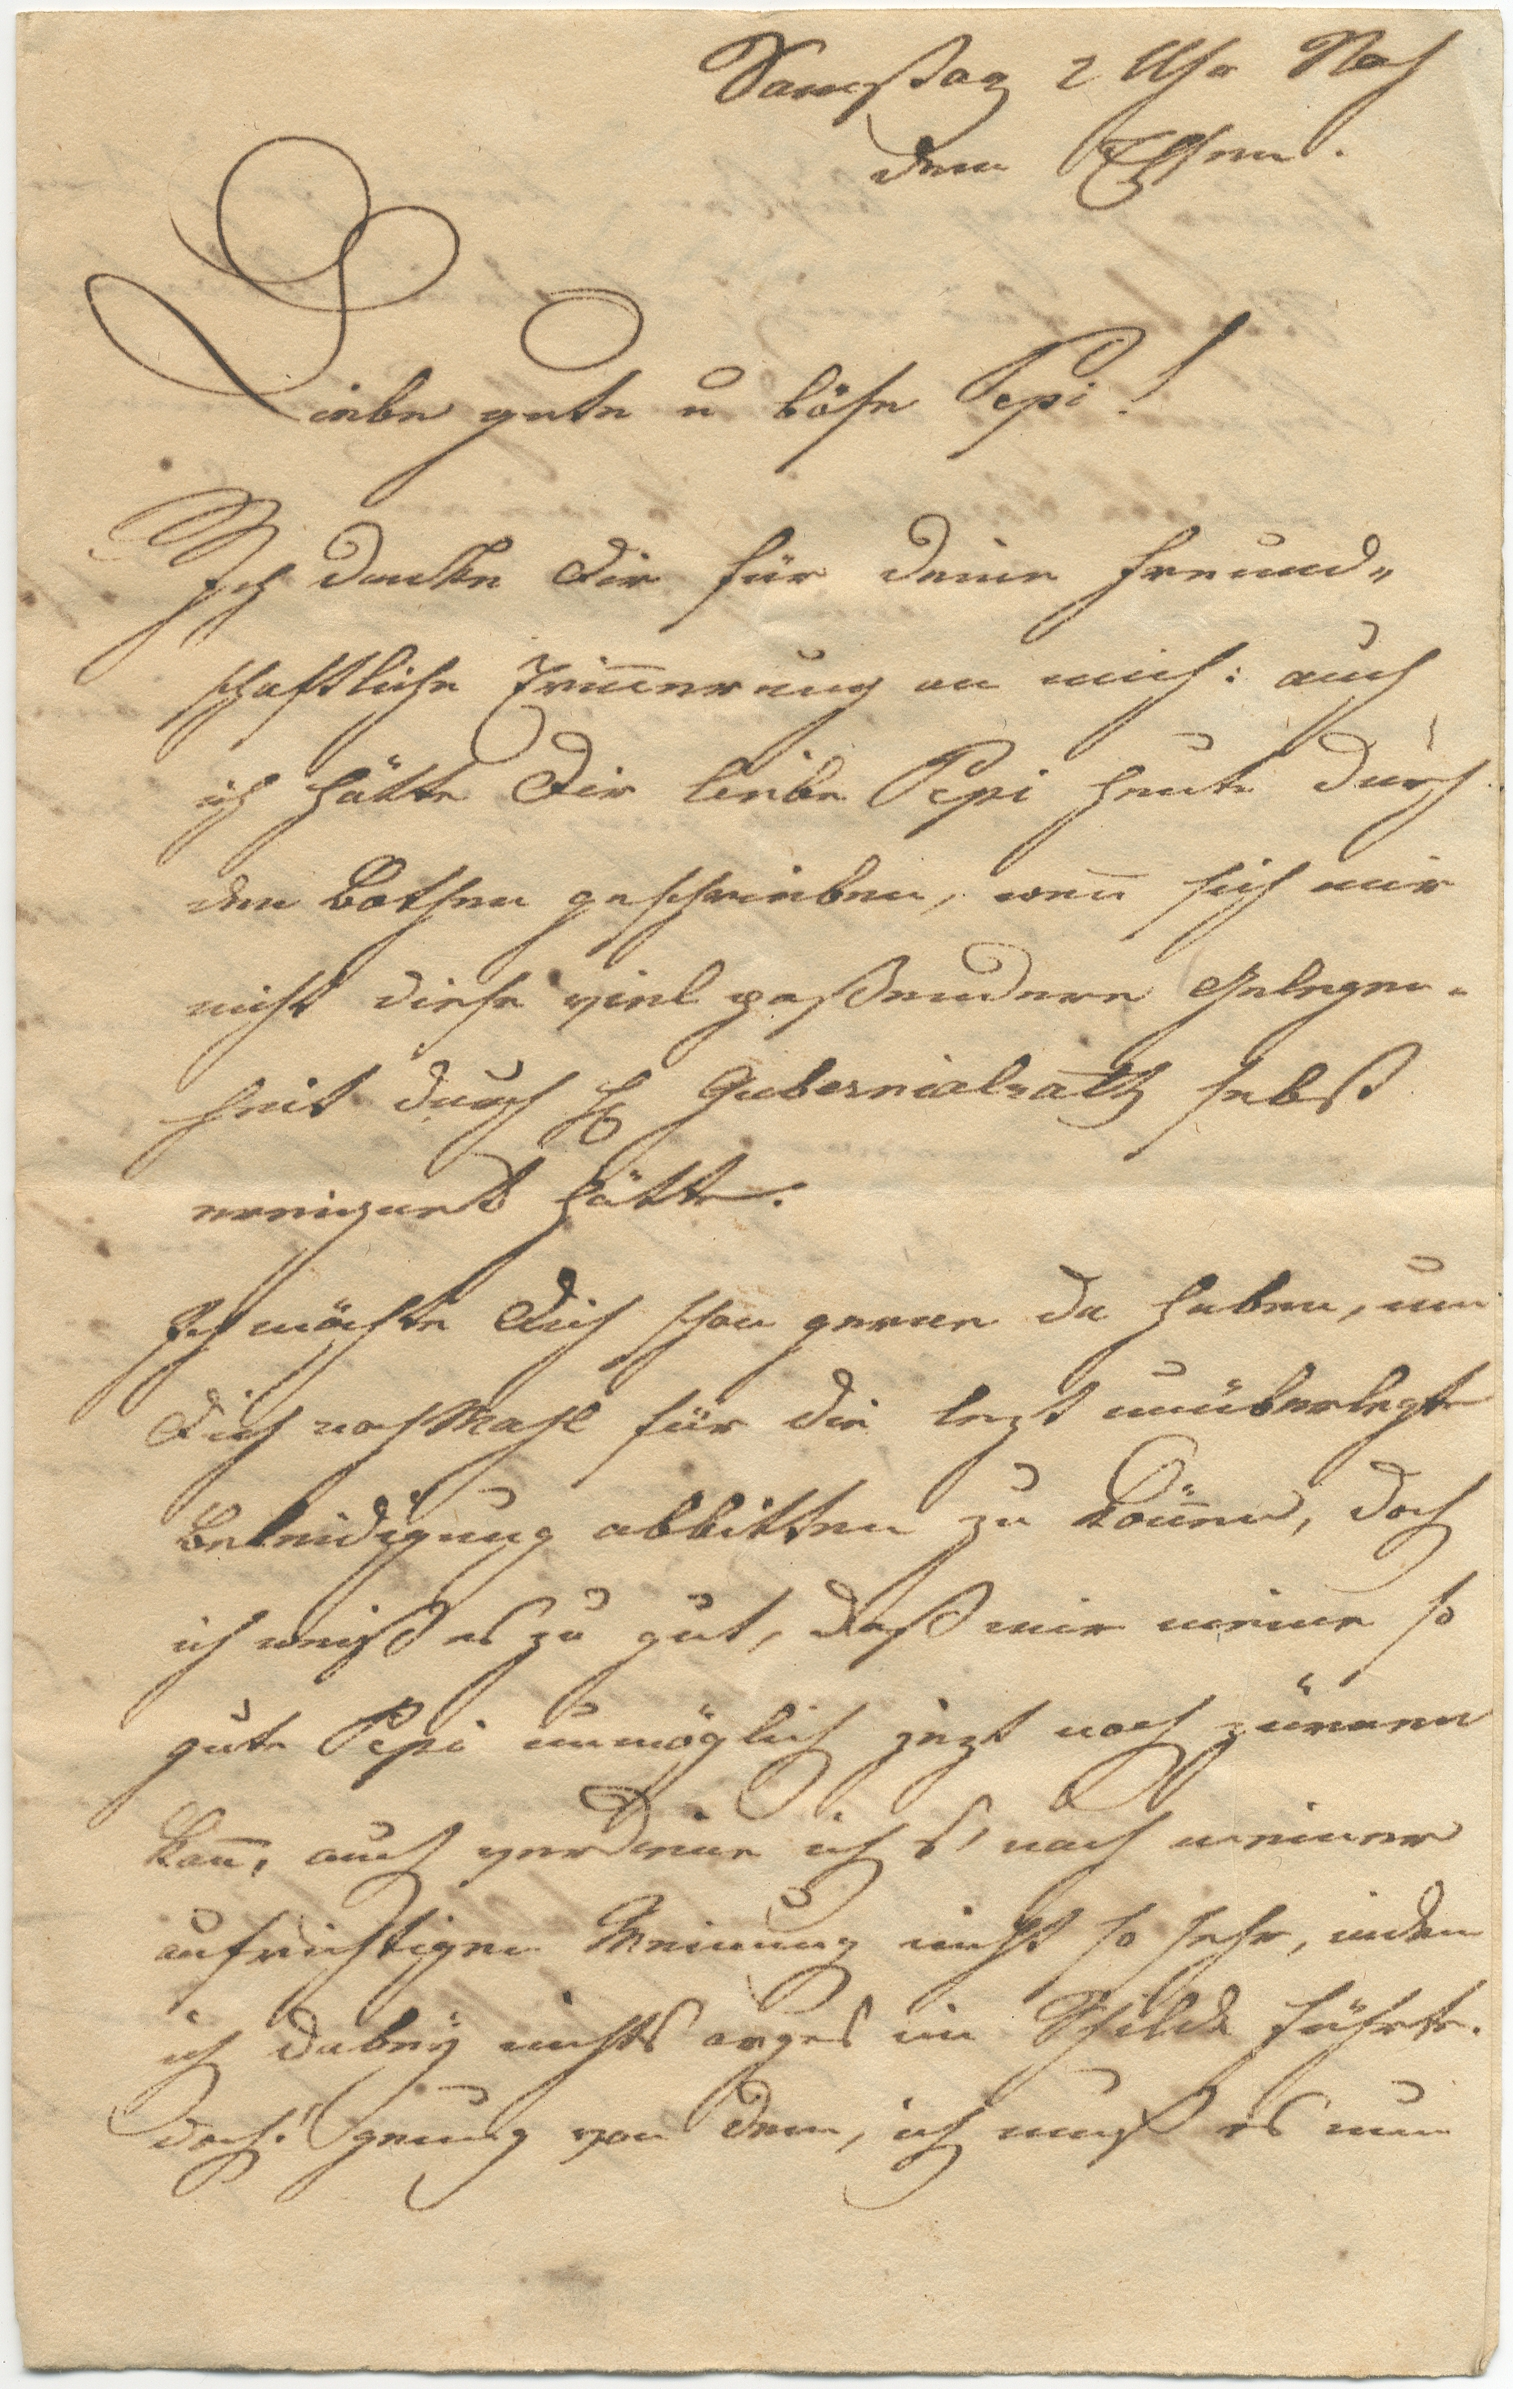 Samstag 2 Uhr Nach
dem Essen.
Liebe gute u böse Pepi!
Ich danke Dir für deine freund„
schaftliche Erin̄erung an mich: auch
ich hätte Dir liebe Pepi heute durch
den Bothen geschrieben, wen̄ sich mir
nicht diese viel paßendere Gelegen-
heit durch H Gubernialrath selbst
ereignet hätte.
Ich möchte Dich schon gerne da haben, um
Dich noch Mahl für die lezt unüberlegte
Beleidigung abbitten zu kön̄en, doch
ich weiß es zu gut, daß mir meine so
gute Pepi unmöglich jezt noch zürnen
kan̄, auch verdiene ich s' nach meiner
aufrichtigen Meinung nicht so sehr, indem
ich dabeÿ nichts arges im Schilde führte.
doch! genug von dem, ich muß es nun